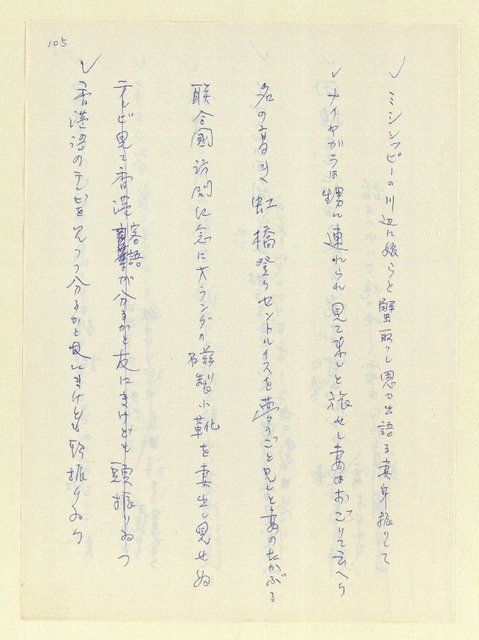 105
ミシシッピーの川辺に娘らと蟹取りし思ひ出語る妻身振りして
ナイヤガラは甥に連れられ見て来しと旅せし妻はおごりて云へり
名の高く虹橋登りセントルイスを夢のごと見しと妻のたかぶる
聯合國訪問紀念にオランダの磁製小靴を妻出し見せぬ
テレビ見て香港客語が分るかと友にきけども頭振りゐつ
香港語のテレビを見つつ分るかと にきけども頭振りゐつ